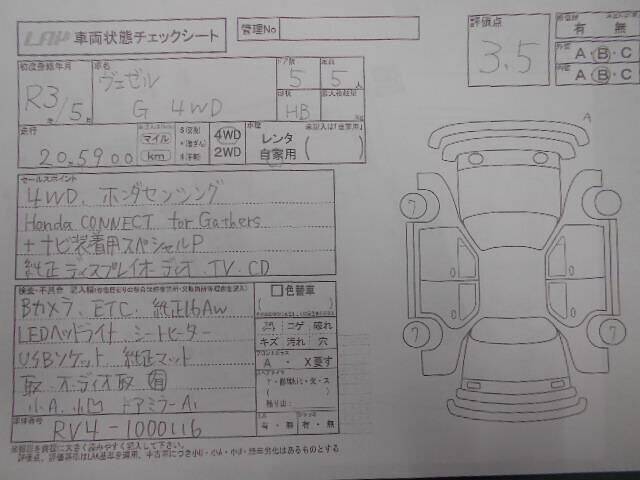 LAK 車両状態チェックシート
管理No
評価点 3.5
有 無
A・B・C
A・B・C
初度登録年月 R3/5
車名 ヴェゼル G 4WD
5
5 人
HB
走行 205900
マイル
km
4WD
2WD
レンタ
自家用
(未記入は「自家用」)
セールスポイント
4WD、ホンダセンシング
Honda CONNECT for Gathers
+ナビ装着用スペシャルP
純正ディスプレイオーディオ・TV・CD
Bカメラ、ETC、純正16Aw
LEDヘッドライト シートヒーター
USBソケット 純正マット
取・オーディオ取 有
小A、小凹 ドアミラーA1
色替車
コゲ 破れ
キズ 汚れ 穴
フロントガラス
A ・ X要す
残り山
有・無 有・無
車体番号 RV4-1000116
A
7 7
7 7